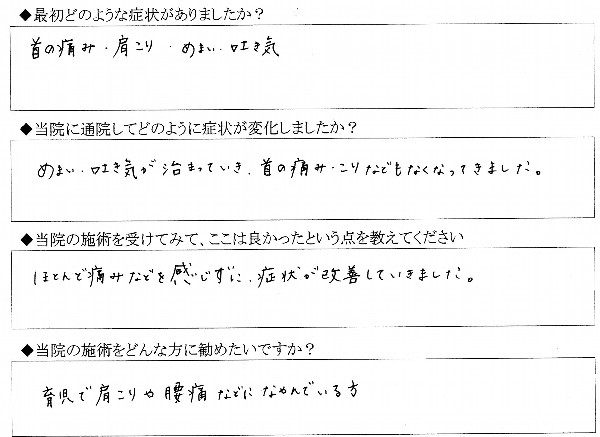 ◆最初どのような症状がありましたか？
首の痛み・肩こり・めまい・吐き気
◆当院に通院してどのように症状が変化しましたか？
めまい・吐き気が治まっていき、首の痛み・こりなどもなくなってきました。
◆当院の施術を受けてみて、ここは良かったという点を教えてください
ほとんど痛みなどを感じずに、症状が改善していきました。
◆当院の施術をどんな方に勧めたいですか？
育児で肩こりや腰痛などになやんでいる方